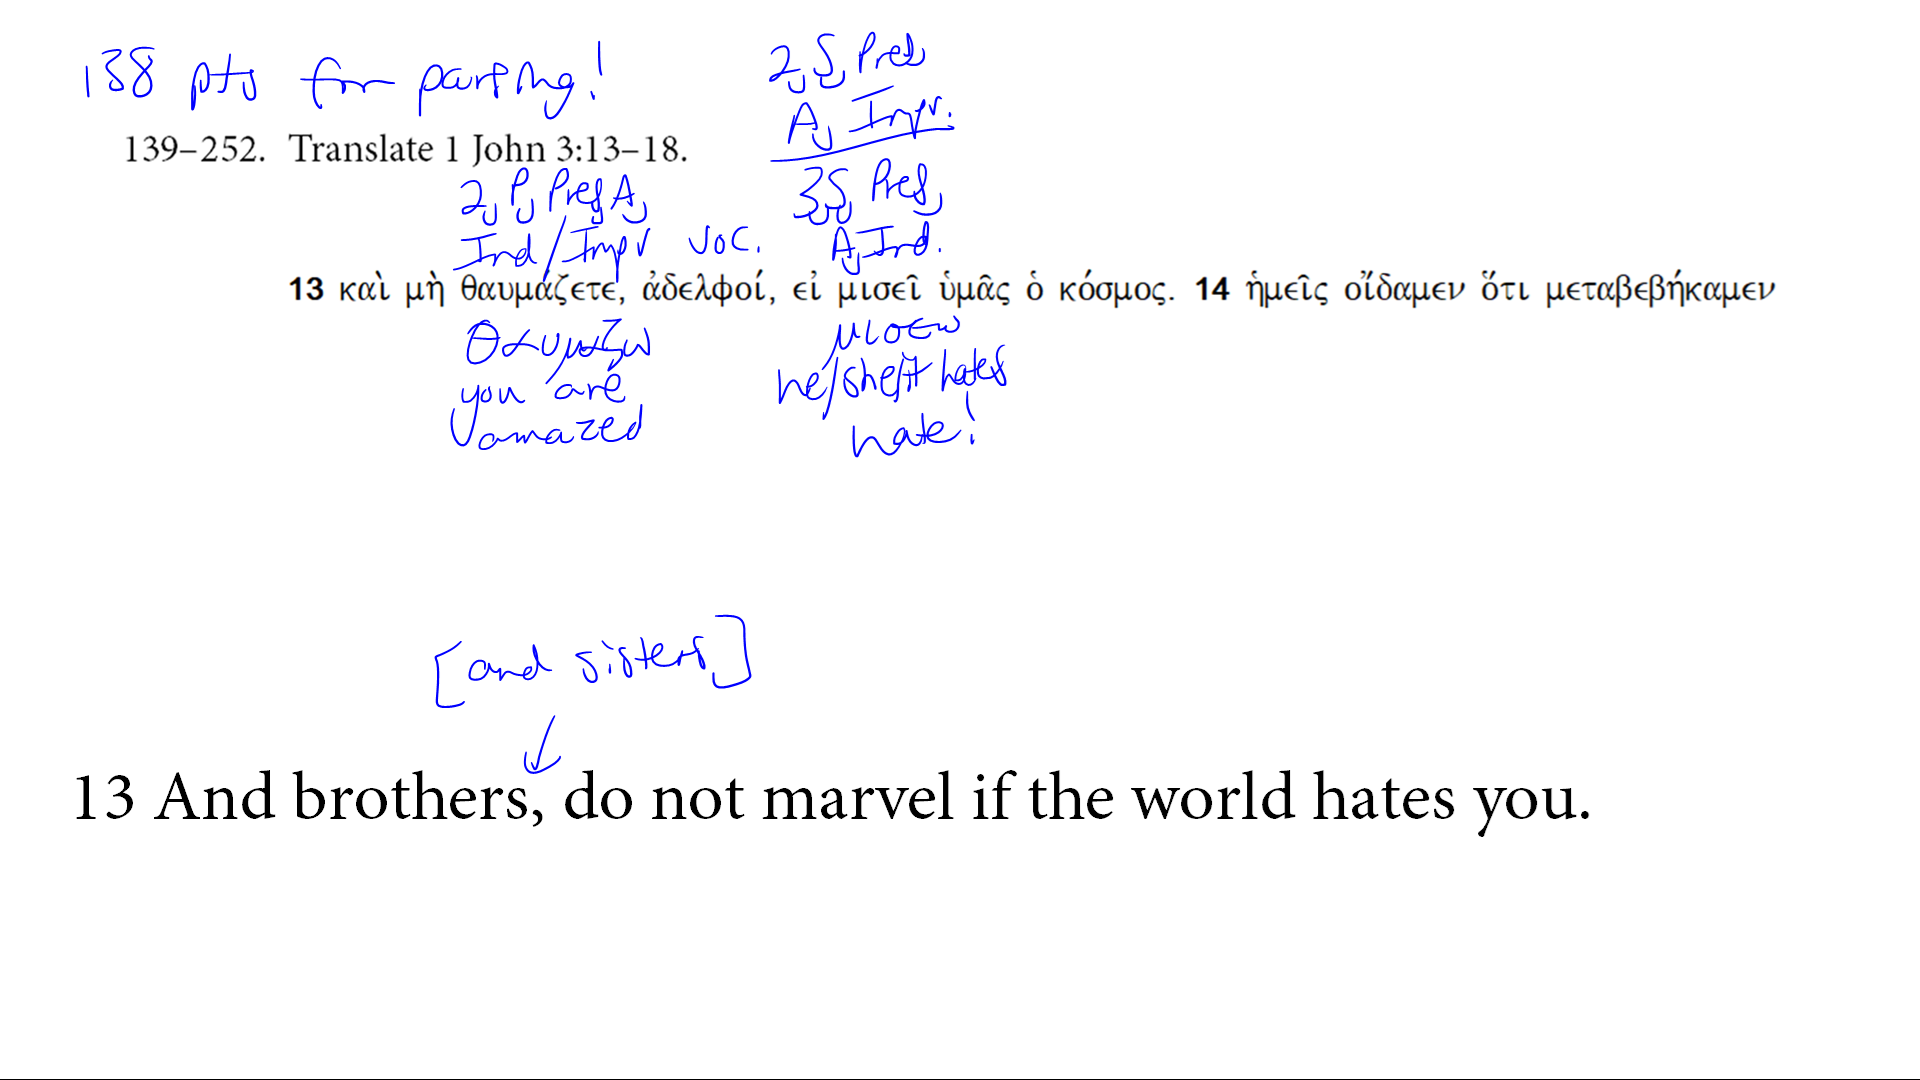 138 pts for parsing!
2, S, Pres
A, Impv.
139–252. Translate 1 John 3:13–18.
2, P, Pres, A,
Ind/Impv voc.
3, S, Pres,
A, Ind.
13 καὶ μὴ θαυμάζετε, ἀδελφοί, εἰ μισεῖ ὑμᾶς ὁ κόσμος. 14 ἡμεῖς οἴδαμεν ὅτι μεταβεβήκαμεν
θαυμαζω
you are
amazed
μισεω
he/she/it hates
hate!
[and sisters]
13 And brothers, do not marvel if the world hates you.